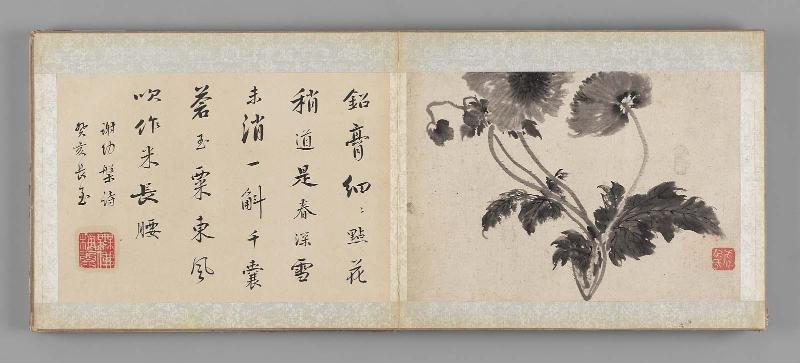 鉛膏細〻點花
稍道是春深雪
未消一斛千囊
蒼玉粟東風
吹作米長腰
謝幼槃詩
癸亥長至